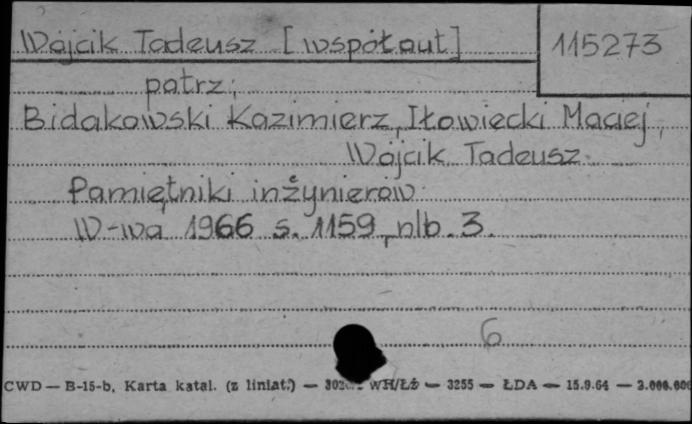 Wójcik Tadeusz [współaut] 115273
patrz:
Bidakowski Kazimierz, Iłowiecki Maciej,
Wójcik Tadeusz.
Pamiętniki inżynierów.
W-wa 1966 s. 1159, nlb. 3.
6
CWD — B-15-b, Karta katal. (z liniat.) — WH/Łż — 3255 — ŁDA — 15.9.64 — 3.000.000